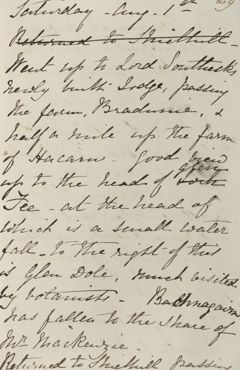 Saturday - Aug. 1st
Returned to Shielhill -
Went up to Lord Southesk's
newly built Lodge, passing
the farm, Bradunie, &
half a mile up the farm
of Hacarn Good view
up to the head of Glen
Fee - at the head of
which is a small water
fall - to the right of this
is Glen Dole, much visited
by botanists -
has fallen to the share of
Mr Mackenzie -
Returned to Shielhill passing